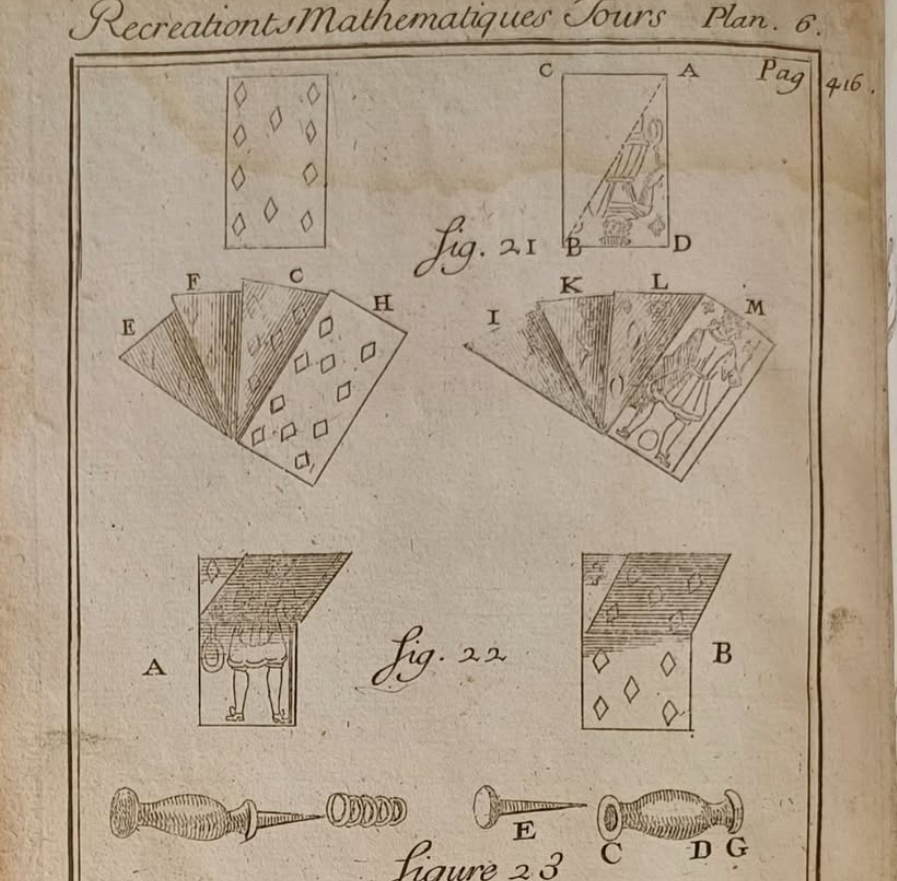 Recreationts Mathematiques Tours Plan. 6.
Pag 416.
C A
fig. 21 B D
E F C H
I K L M
A fig. 22 B
E C D G
figure 23